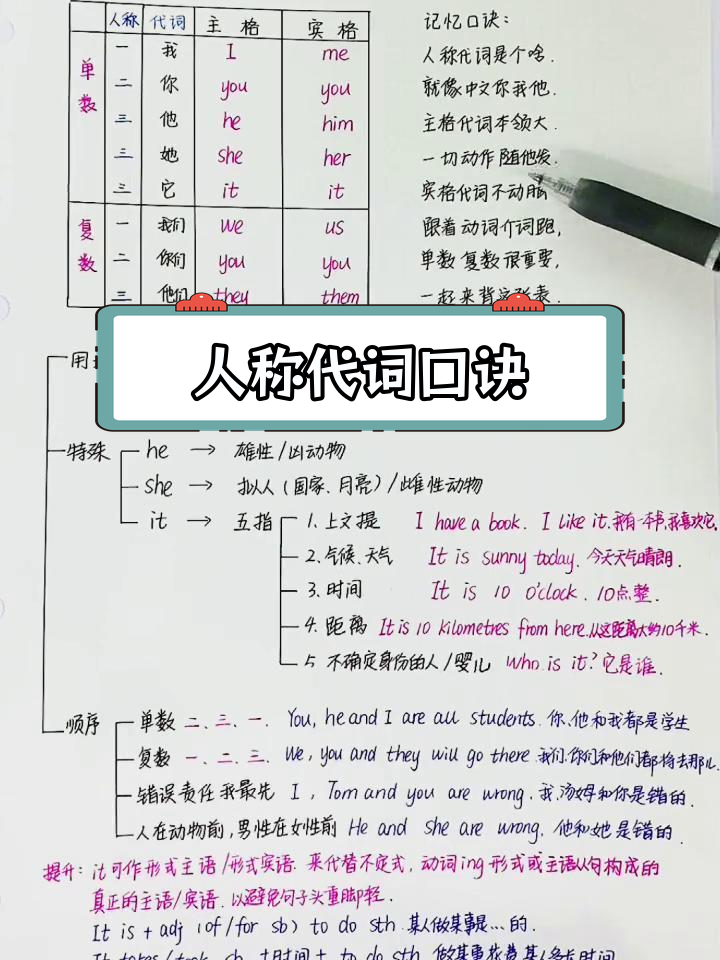 人称 代词 主格 宾格
单数 一 我 I me
二 你 you you
三 他 he him
三 她 she her
三 它 it it
复数 一 我们 we us
二 你们 you you
三 他们 they them
记忆口诀:
人称代词是个啥.
就像中文你我他.
主格代词本领大.
一切动作随他发.
宾格代词不动脑
跟着动词介词跑,
单数复数很重要,
一起来背这张表.
人称代词口诀
用
特殊 he → 雄性/凶动物
she → 拟人(国家、月亮)/雌性动物
it → 五指 1. 上文提 I have a book. I like it. 我有一本书,我喜欢它.
2. 气候、天气 It is sunny today. 今天天气晴朗.
3. 时间 It is 10 o'clock. 10点整.
4. 距离 It is 10 kilometres from here. 从这距离大约10千米.
5 不确定身份的人/婴儿 Who is it? 它是谁.
顺序 单数 二、三、一. You, he and I are all students. 你、他和我都是学生
复数 一、二、三. We, you and they will go there. 我们、你们和他们都将去那儿.
错误责任我最先 I, Tom and you are wrong. 我、汤姆和你是错的.
人在动物前,男性在女性前 He and she are wrong. 他和她是错的.
提升: it可作形式主语/形式宾语. 来代替不定式,动词ing形式或主语从句构成的
真正的主语/宾语. 以避免句子头重脚轻.
It is + adj (of/for sb) to do sth 某人做某事是…的.
It takes/took sb +时间+ to do sth 做某事花费某人多长时间